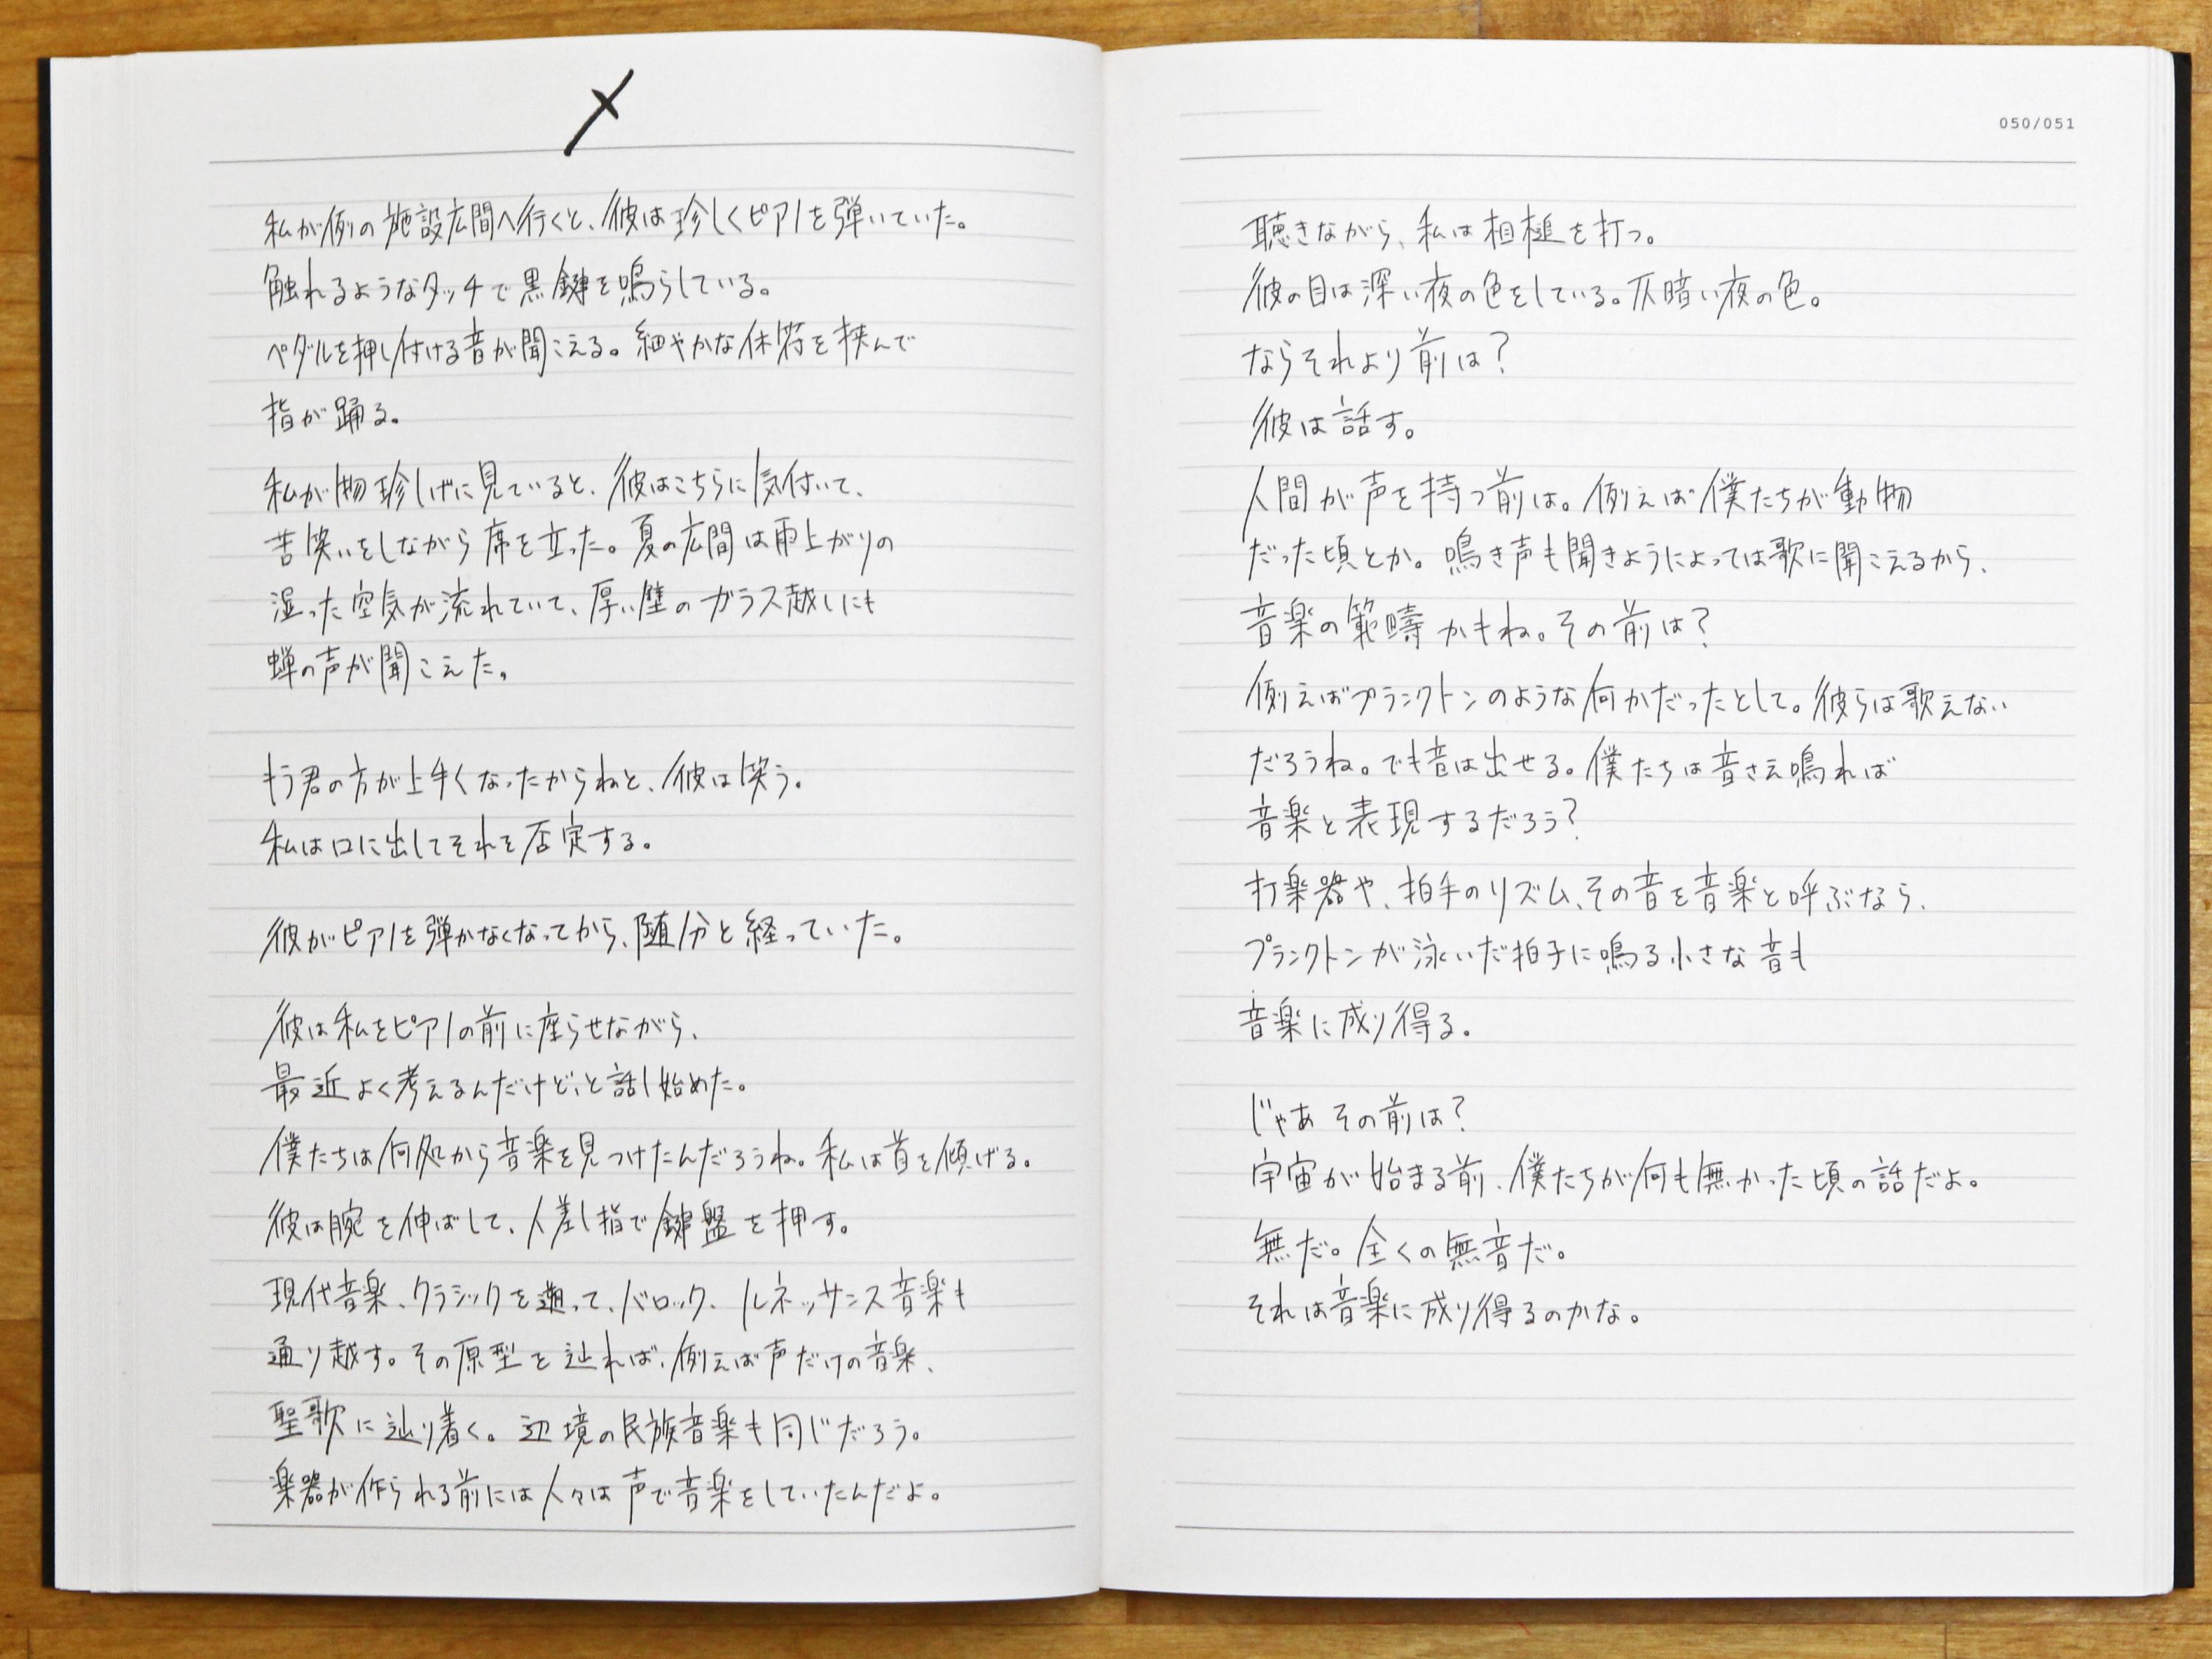 メ
私が例の施設広間へ行くと、彼は珍しくピアノを弾いていた。
触れるようなタッチで黒鍵を鳴らしている。
ペダルを押し付ける音が聞こえる。細やかな休符を挟んで
指が踊る。
私が物珍しげに見ていると、彼はこちらに気付いて、
苦笑いをしながら席を立った。夏の広間は雨上がりの
湿った空気が流れていて、厚い壁のガラス越しにも
蝉の声が聞こえた。
もう君の方が上手くなったからねと、彼は笑う。
私は口に出してそれを否定する。
彼がピアノを弾かなくなってから、随分と経っていた。
彼は私をピアノの前に座らせながら、
最近よく考えるんだけど、と話し始めた。
僕たちは何処から音楽を見つけたんだろうね。私は首を傾げる。
彼は腕を伸ばして、人差し指で鍵盤を押す。
現代音楽、クラシックを遡って、バロック、ルネッサンス音楽も
通り越す。その原型を辿れば、例えば声だけの音楽、
聖歌に辿り着く。辺境の民族音楽も同じだろう。
楽器が作られる前には人々は声で音楽をしていたんだよ。
050/051
聴きながら、私は相槌を打つ。
彼の目は深い夜の色をしている。仄暗い夜の色。
ならそれより前は？
彼は話す。
人間が声を持つ前は。例えば僕たちが動物
だった頃とか。鳴き声も聞きようによっては歌に聞こえるから、
音楽の範疇かもね。その前は？
例えばプランクトンのような何かだったとして。彼らは歌えない
だろうね。でも音は出せる。僕たちは音さえ鳴れば
音楽と表現するだろう？
打楽器や、拍手のリズム、その音を音楽と呼ぶなら、
プランクトンが泳いだ拍子に鳴る小さな音も
音楽に成り得る。
じゃあその前は？
宇宙が始まる前、僕たちが何も無かった頃の話だよ。
無だ。全くの無音だ。
それは音楽に成り得るのかな。